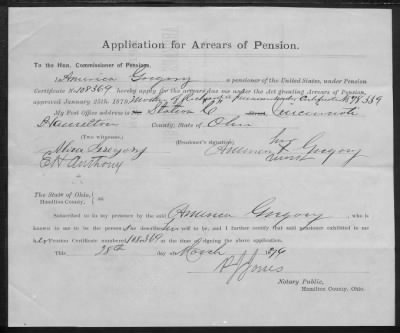 Application for Arrears of Pension.
To the Hon. Commissioner of Pension.
I America Gregory a pensioner of the United States, under Pension
Certificate No 108369 hereby apply for the arrears due me under the Act granting Arrears of Pension,
approved January 25th, 1879, Mother of Richard a pensioner under Certificate No 78339
My Post Office address is Station C Street, Cincinnati
Hamilton County, State of Ohio
(Two witnesses.) (Pensioner's signature)
Gregory America X Gregory
E H Anthony mark
The State of Ohio, ss
Hamilton County.
Subscribed to in my presence by the said America Gregory, who is
known to me to be the person he described self to be, and I further certify that said pensioner exhibited to me
her Pension Certificate numbered 108369 at the time of signing the above application.
This 28th day of March 1879
Jones
Notary Public,
Hamilton County, Ohio.